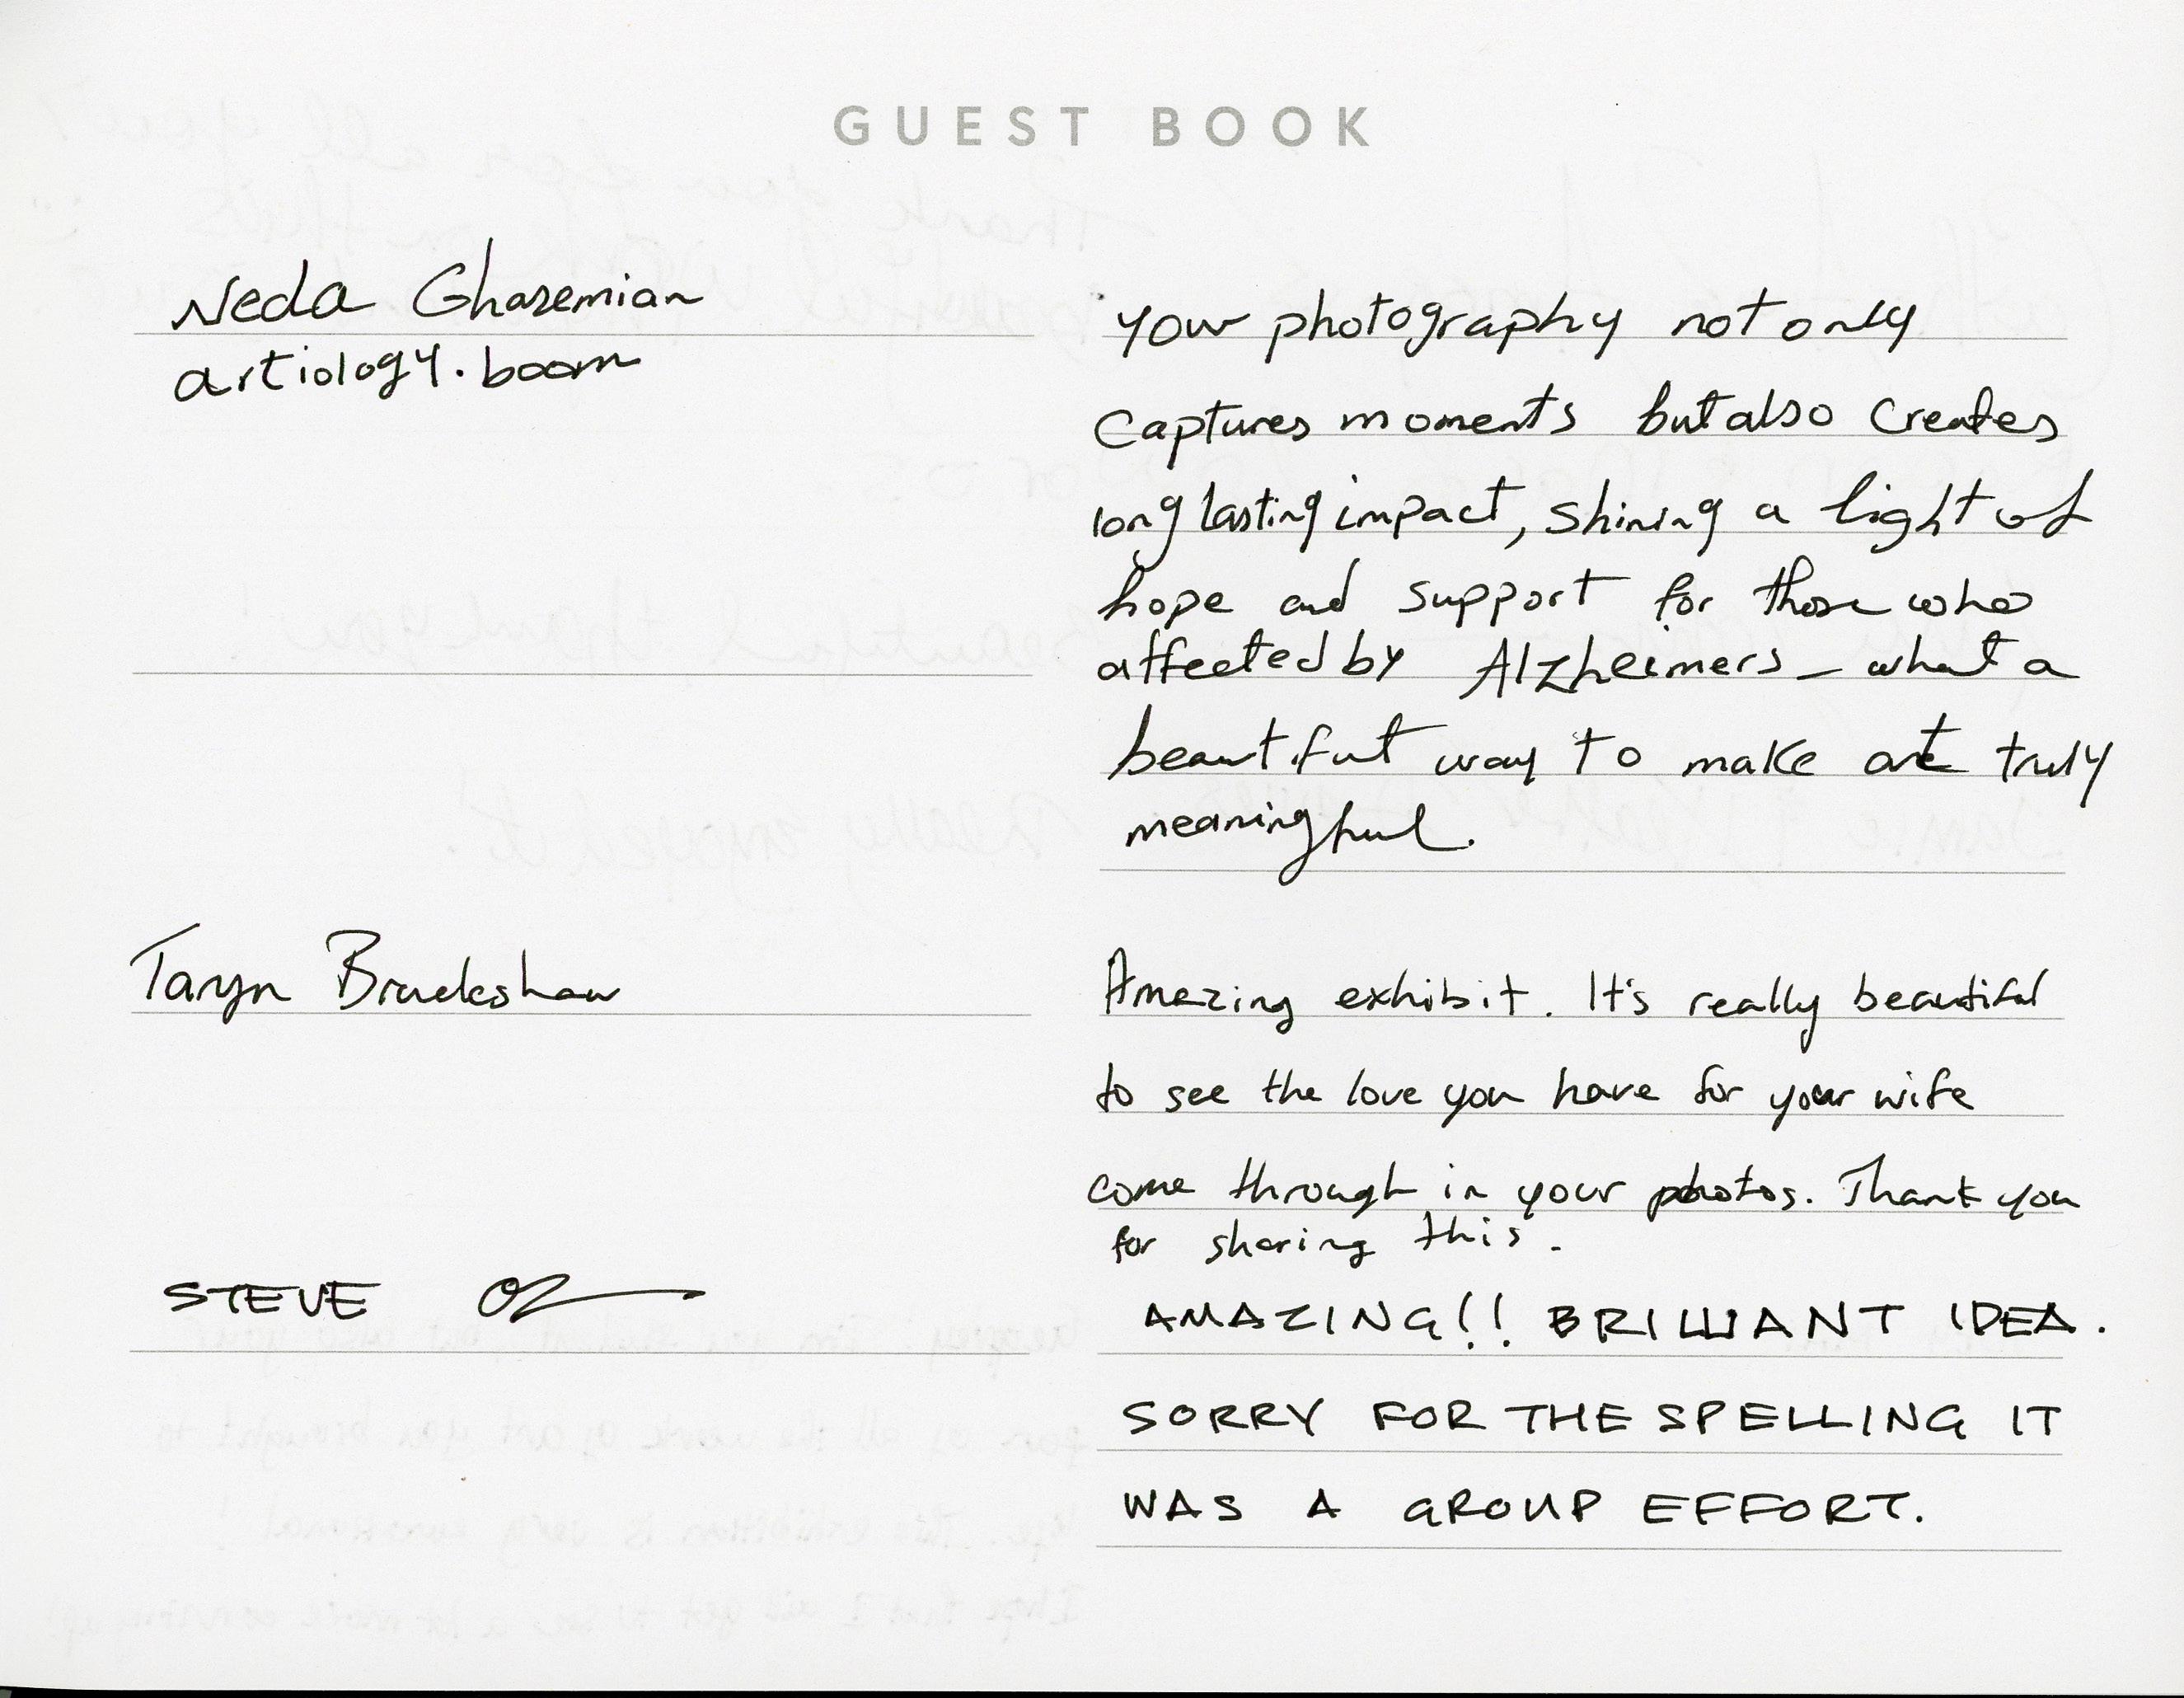 GUEST BOOK
Neda Ghasemian
artiology.boom
your photography not only
Captures moments but also creates
long lasting impact, shining a light of
hope and support for those who
affected by Alzheimers _ what a
beautiful way to make art truly
meaningful.
Taryn
Amazing exhibit. It's really beautiful
to see the love you have for your wife
come through in your photos. Thank you
for sharing this.
STEVE
AMAZING!! BRILLIANT IDEA.
SORRY FOR THE SPELLING IT
WAS A GROUP EFFORT.